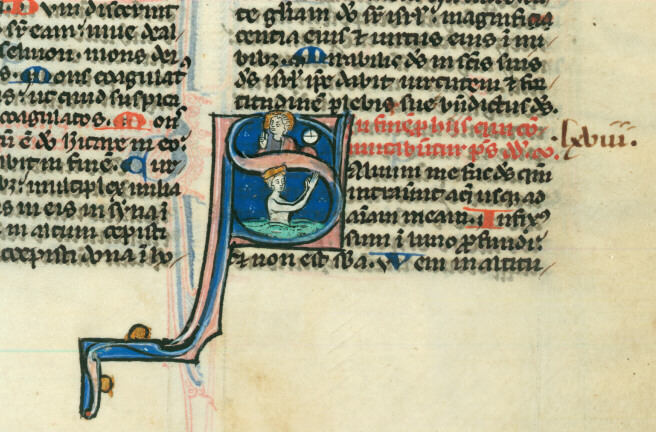 um discernit
sr eam: niue deal
selmon. mons dei
s. Mons coagulat
us. ut quid suspica
coagulatos. Mons
ē dō hītare in eo:
abit in finē. Cur
bz: multiplex milia
s in eis in syna i
in altum cepisti
accepisti dona i ho
te gliam dō sr isrl': magnifica
centia eius et uirtus eius i nu
bibz. Mirabilis ds in scīs suis
ds isrl' ipe dabit uirtutem et for
titudinē plebis sue bndictus ds.
In finē p hiis qui cō
mutabuntur ps dd.
lxviii.
Saluum me fac ds qm
intrauerunt aq usq ad
aīam meam. Infix
sum i limo pfundi:
et non est sba. Veni in altitu